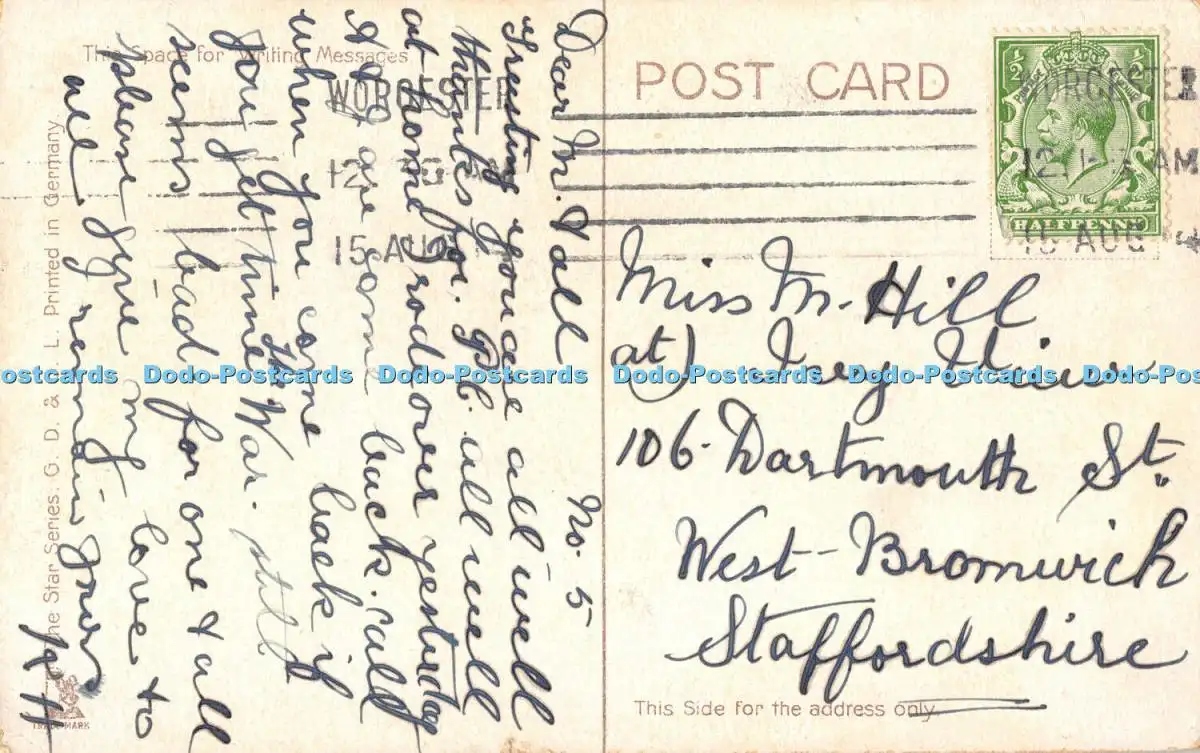 This Space for Writing Messages
POST CARD
WORCESTER
12 AM
15 AUG
WORCESTER
12 AM
15 AUG 4
½ ½
HALFPENNY
No. 5
Dear M.
Trusting you are all well
thanks for P.C. all well
at home I rode over yesterday
when you come back if
you get time
The War. still
seems bad for one & all
please give my love to
all yours
Miss M. Hill
at) Ivy View
106. Dartmouth St.
West-Bromwich
Staffordshire
The Star Series. G. D. & D. L. Printed in Germany.
TRADE MARK
This Side for the address only.
Dodo-Postcards Dodo-Postcards Dodo-Postcards Dodo-Postcards